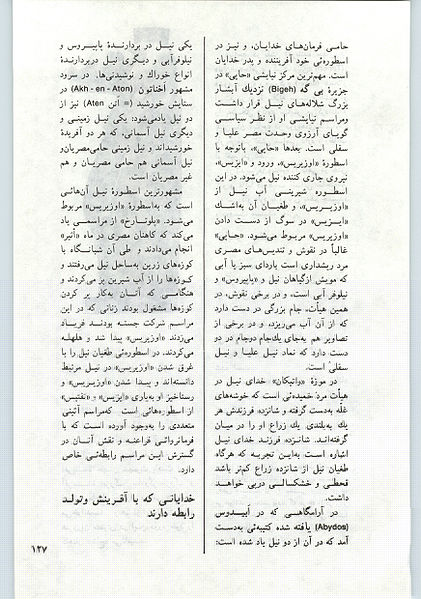 حامی فرمان‌های خدایان، و نیز در
اسطوره‌ئی خود آفریننده و پدر خدایان
است. مهم‌ترین مرکز نیایشی «حاپی» در
جزیرهٔ بی گه (Bigeh) نزدیك آبشار
بزرگ شلاله‌های نیل قرار داشت
ومراسم نیایشی او از نظر سیاسی
گویای آرزوی وحدت مصر علیا و
سفلی است. بعدها «حاپی»، باتوجه با
اسطورهٔ «اوزیریس»، ورود و «ایزیس»،
نیروی جاری کننده نیل می‌شود. در این
اسطوره شیرینی آب نیل از
«اوزیریس»، و طغیان آن به‌اشك
«ایزیس» در سوگ از دست دادن
«اوزیریس» مربوط می‌شود. «حاپی»
غالباً در نقوش و تندیس‌های مصری
مرد ریشداری است باردای سبز یا آبی
که مویش ازگیاهان نیل و «پاپیروس» و
نیلوفر آبی است، و در برخی نقوش، در
همین هیأت، جام بزرگی در دست دارد
که از آن آب می‌ریزد، و در برخی از
تصاویر هم به‌جای یك‌جام دوجام در دو
دست دارد که نماد نیل علیا و نیل
سفلی است.
در موزهٔ «واتیکان» خدای نیل در
هیأت مرد خمیده‌ئی است که خوشه‌های
غلّه به‌دست گرفته و شانزده فرزندش هر
یك به‌بلندی یك زراع او را در میان
گرفته‌اند. شانزده فرزند خدای نیل
اشاره است به‌این تجربه که هرگاه
طغیان نیل از شانزده زراع کم‌تر باشد
قحطی و خشکسالی درپی خواهد
داشت.
در آرامگاهی که در آبیدوس
(Abydos) یافته شده کتیبه‌ئی به‌دست
آمد که در آن از دو نیل یاد شده است:
یکی نیل در بردارندهٔ پاپیروس و
نیلوفرآبی و دیگری نیل دربردارندهٔ
انواع خوراك و نوشیدنی‌ها. در سرود
مشهور آخناتون (Akh - en - Aton) در
ستایش خورشید (= آتن Aten) نیز از
دو نیل یادمی‌شود: یکی نیل زمینی و
دیگری نیل آسمانی، که هر دو آفریدهٔ
خورشیداند و نیل زمینی حامی‌مصریان‌و
نیل آسمانی هم حامی مصریان و هم
غیر مصریان است.
مشهورترین اسطورهٔ نیل آن‌هائی
است که به‌اسطورهٔ «اوزیریس» مربوط
می‌شود. «پلوتارخ» از مراسمی یاد
می‌کند که کاهنان مصری در ماه «آثیر»
انجام می‌دادند و طی آن شبانگاه با
کوزه‌های زرین به‌ساحل نیل می‌رفتند و
کوزه‌ها را از آب شیرین پر می‌کردند و
هنگامی که آنان به‌کار پر کردن
کوزه‌ها مشغول بودند زنانی که در این
مراسم شرکت جسته بودند فریاد
می‌زدند «اوزیریس» پیدا شد و هلهله
می‌کردند. در اسطوره‌ئی طغیان نیل را با
غرق شدن «اوزیریس» در نیل مرتبط
دانسته‌اند و پیدا شدن «اوزیریس» و
رستاخیز او به‌یاری «ایزیس» و «نفتیس»
از اسطوره‌هائی است که‌مراسم آئینی
متعددی را به‌وجود آورده است که با
فرمانروائی فراعنه و نقش آنان در
گسترش این مراسم رابطه‌ئی خاص
دارد.
خدایانی که با آفرینش وتولد
رابطه دارند
۱۲۷